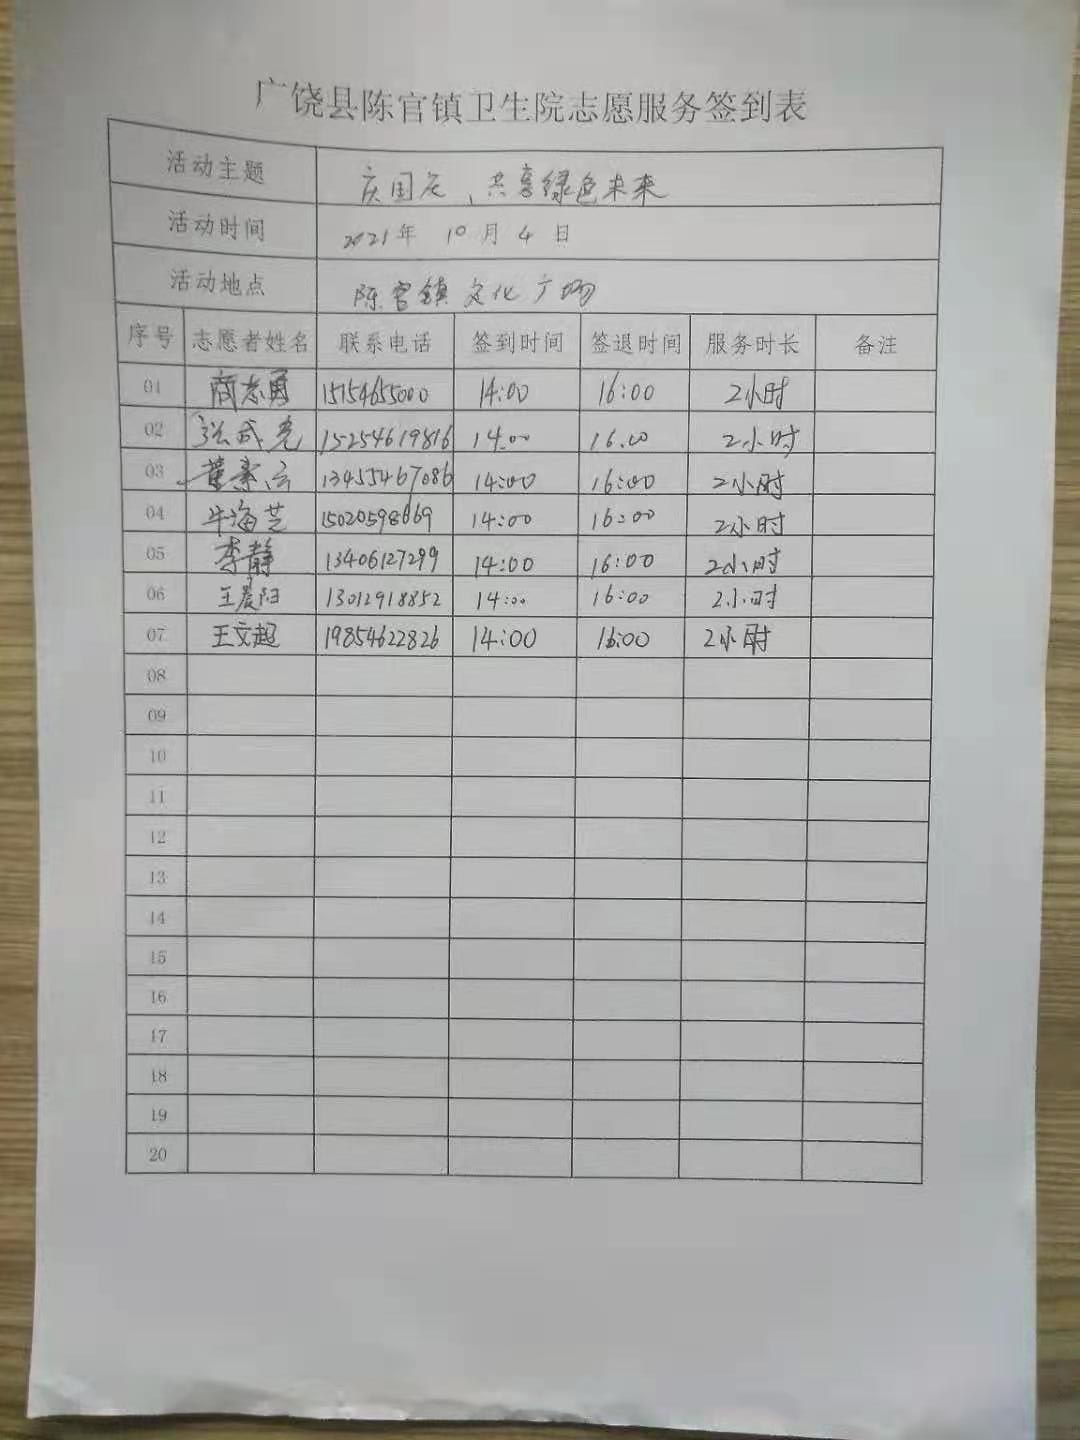 广饶县陈官镇卫生院志愿服务签到表
活动主题 庆国庆、共享绿色未来
活动时间 2021年 10月 4日
活动地点 陈官镇文化广场
序号 志愿者姓名 联系电话 签到时间 签退时间 服务时长 备注
01 商志勇 15154655000 14:00 16:00 2小时
02 张成亮 15254619816 14:00 16:00 2小时
03 董素云 13455467086 14:00 16:00 2小时
04 牛海芝 15020598669 14:00 16:00 2小时
05 李静 13406127299 14:00 16:00 2小时
06 王晨阳 13012918852 14:00 16:00 2小时
07 王文超 19854622826 14:00 16:00 2小时
08
09
10
11
12
13
14
15
16
17
18
19
20